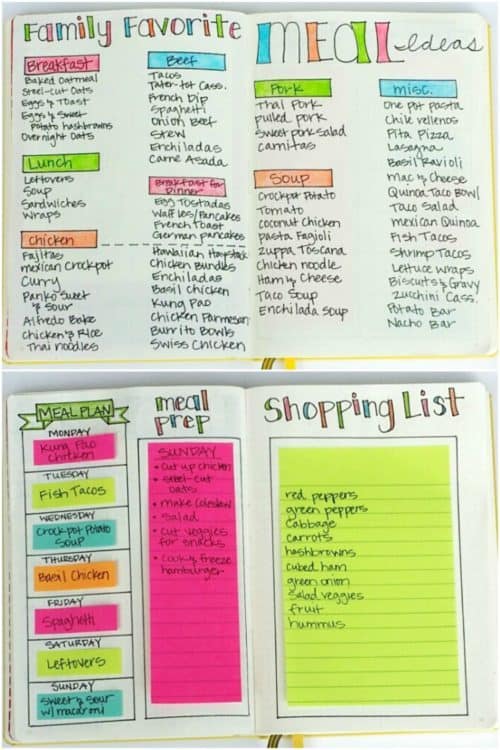 Family Favorite
MEAL Ideas
Breakfast
Baked Oatmeal
Steel-cut Oats
Eggs & Toast
Eggs & Sweet
Potato hashbrowns
Overnight Oats
Lunch
Leftovers
Soup
Sandwiches
Wraps
Chicken
Fajitas
mexican Crockpot
Curry
Panko Sweet
& Sour
Alfredo Bake
Chicken & Rice
Thai noodles
Beef
Tacos
Tater-tot Cass.
French Dip
Spaghetti
Onion Beef
Stew
Enchiladas
Carne Asada
Breakfast for
Dinner
Egg Tostadas
Waffles/Pancakes
French Toast
German pancakes
Hawaiian Haystack
Chicken Bundles
Enchiladas
Basil Chicken
Kung Pao
Chicken Parmesan
Burrito Bowls
Swiss Chicken
Pork
Thai Pork
pulled pork
Sweet pork salad
carnitas
Soup
Crockpot Potato
Tomato
coconut Chicken
Pasta Fagioli
Zuppa Toscana
Chicken noodle
Ham & Cheese
Taco Soup
Enchilada Soup
misc.
One pot pasta
Chile rellenos
Pita Pizza
Lasagna
Basil Ravioli
mac & Cheese
Quinoa Taco Bowl
Taco Salad
mexican Quinoa
Fish Tacos
Shrimp Tacos
Lettuce wraps
Biscuits & Gravy
Zucchini Cass.
Potato Bar
Nacho Bar
MEAL PLAN
MONDAY
Kung Pao
Chicken
TUESDAY
Fish Tacos
WEDNESDAY
Crockpot Potato
Soup
THURSDAY
Basil Chicken
FRIDAY
Spaghetti
SATURDAY
Leftovers
SUNDAY
Sweet & Sour
w/ macaroni
meal
prep
SUNDAY
• Cut up chicken
• Steel-cut
oats
• make Coleslaw
• Salad
• Cut veggies
for snacks
• Cook & freeze
hamburger
Shopping List
red peppers
green peppers
cabbage
carrots
hashbrowns
cubed ham
green onion
Salad veggies
fruit
hummus